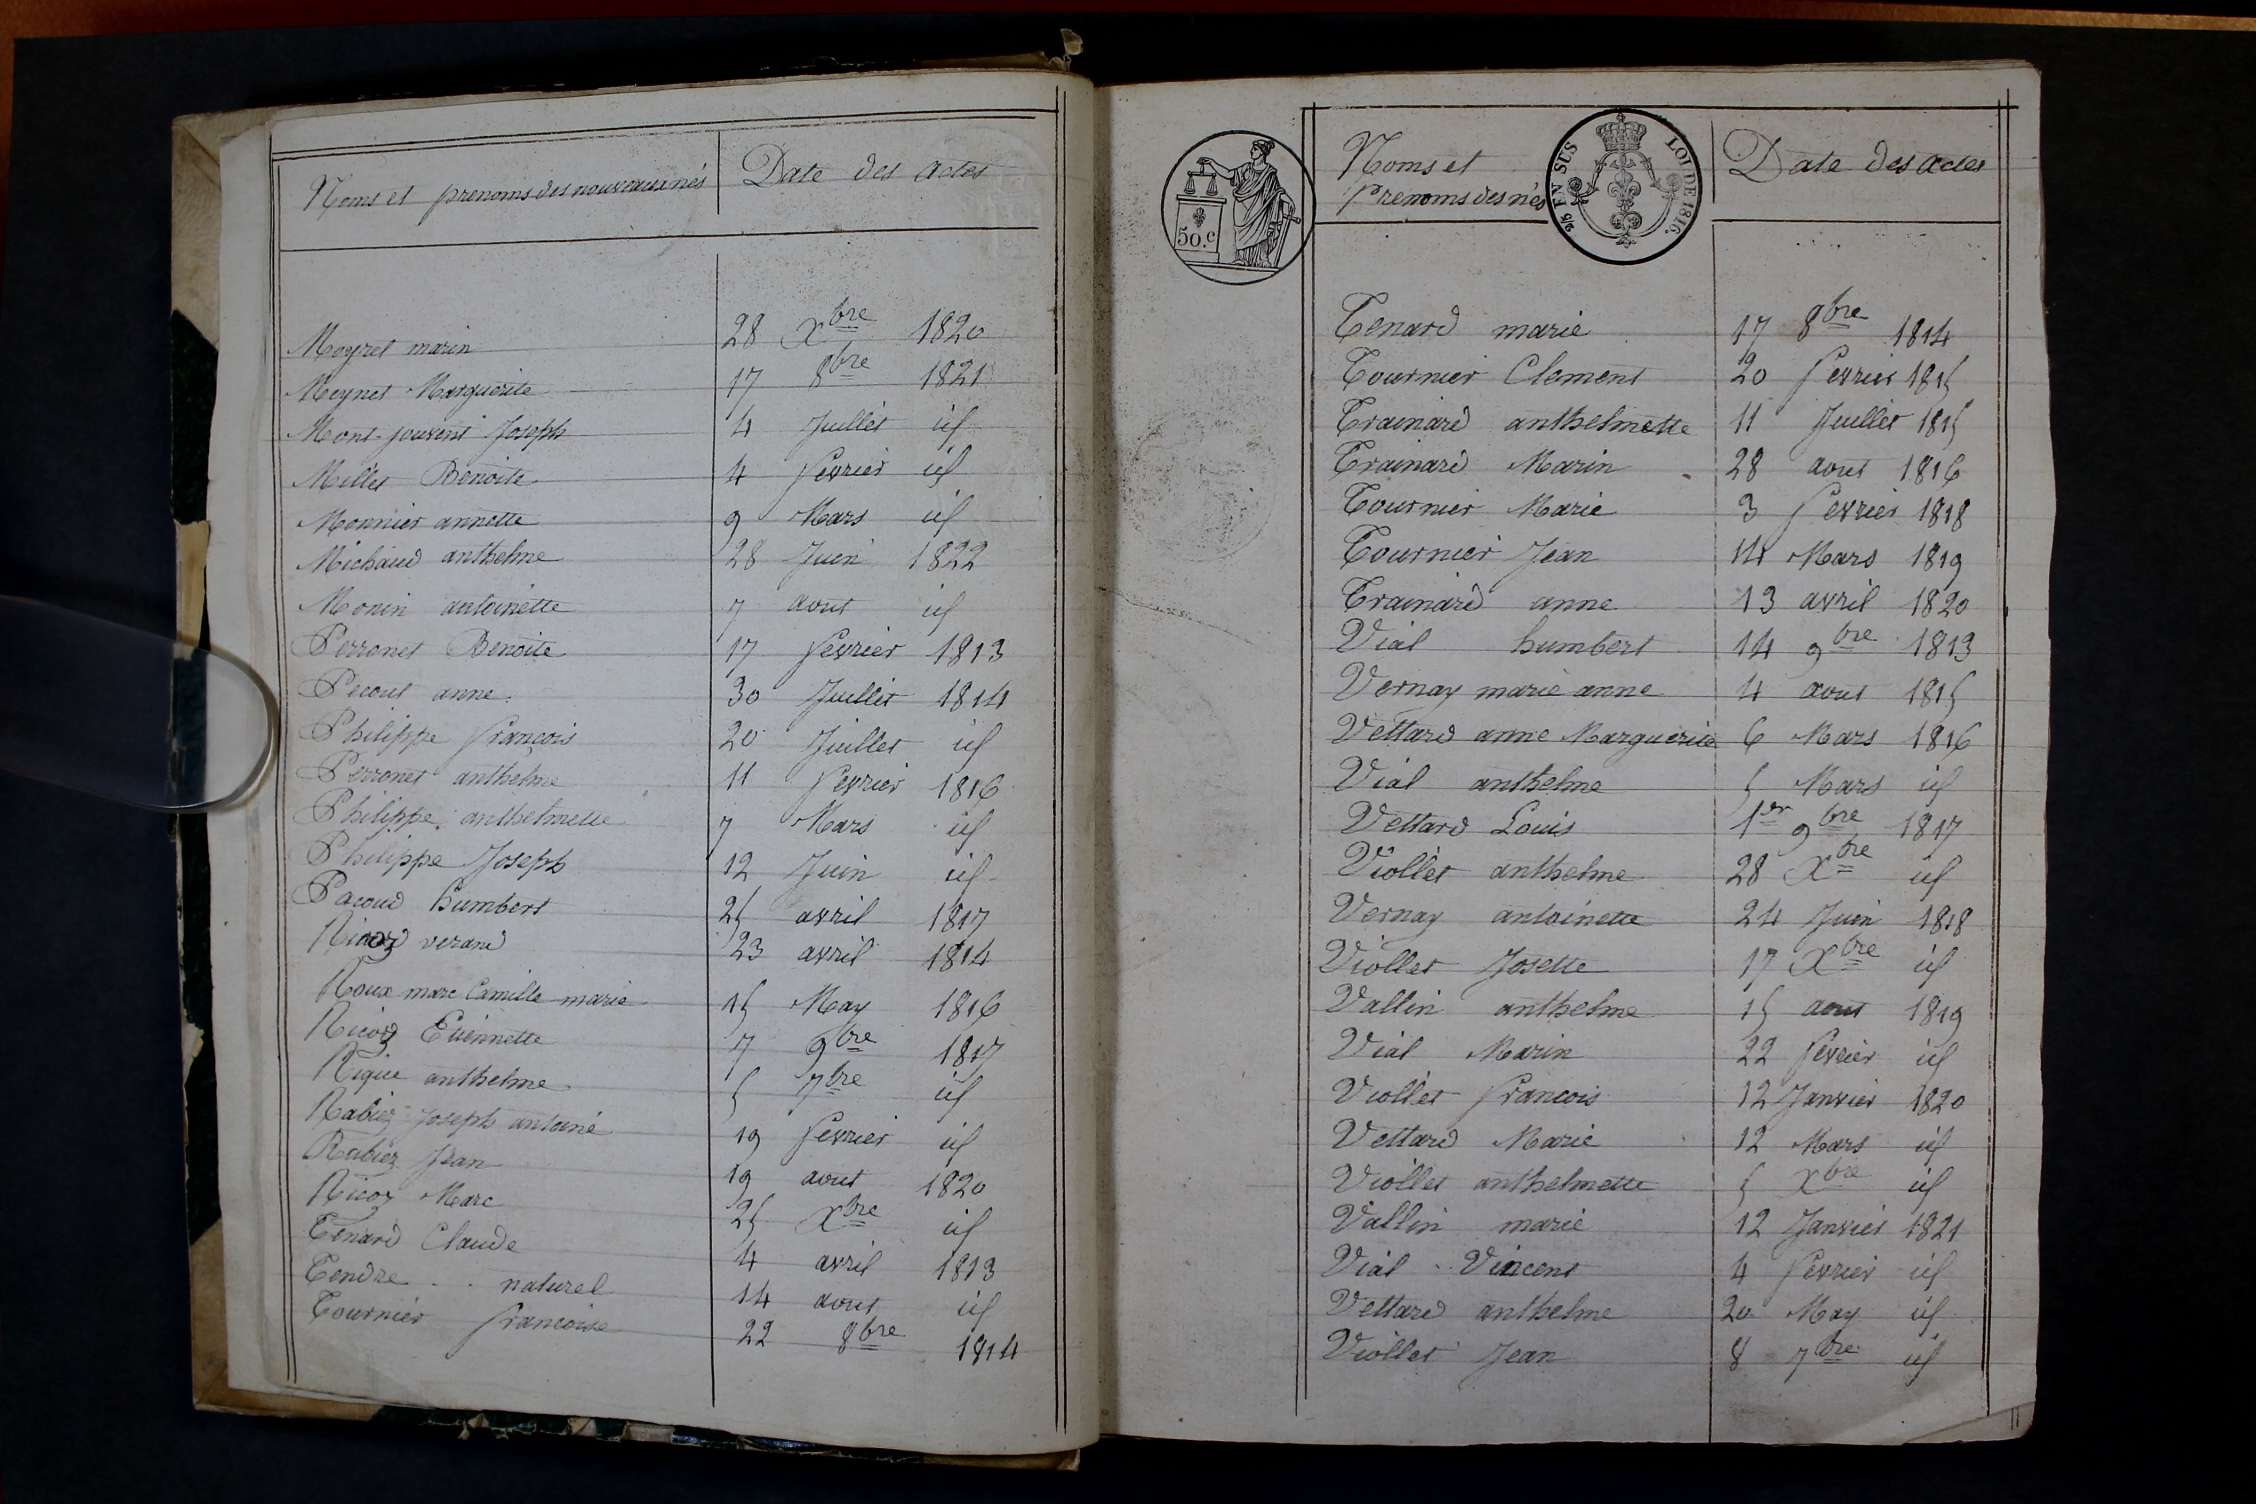 Noms et prenoms des nouveaux nés Date des actes
Meyret marin 28 Xbre 1820
Meynet Marguerite 17 8bre 1821
Mont-jouvent Joseph 4 Juillet id
Millet Benoite 4 fevrier id
Monnier annette 9 Mars id
Michaud anthelme 28 Juin 1822
Monin antoinette 7 aout id
Perronet Benoite 17 fevrier 1813
Pecout anne 30 Juillet 1814
Philippe françois 20 Juillet id
Perronet anthelme 11 fevrier 1816
Philippe anthelmette 7 Mars id
Philippe Joseph 12 Juin id
Pacoud humbert 25 avril 1817
verand 23 avril 1814
Roux marc Camille marie 15 May 1816
Ricoz Etiennette 7 9bre 1817
Rigue anthelme 5 7bre id
Rabiez Joseph antoine 19 fevrier id
Rabiez Jean 19 aout 1820
Ricoz Marc 25 Xbre id
Tenard Claude 4 avril 1813
Tendre . . naturel 14 aout id
Tournier francoise 22 8bre 1814
50.c
EN SUS LOI DE 1816.
Noms et
Prenoms des nés Date des actes
Tenard marie 17 8bre 1814
Tournier Clement 20 fevrier 1815
Trainard anthelmette 11 Juillet 1815
Trainard Marin 28 aout 1816
Tournier Marie 3 fevrier 1818
Tournier Jean 14 Mars 1819
Trainard anne 13 avril 1820
Vial humbert 14 9bre 1813
Vernay marie anne 4 aout 1815
Vettard anne Marguerite 6 Mars 1816
Vial anthelme 5 Mars id
Vettard Louis 1er 9bre 1817
Viollet anthelme 28 Xbre id
Vernay antoinette 24 Juin 1818
Viollet Josette 17 Xbre id
Vallin anthelme 15 aout 1819
Vial Marin 22 fevrier id
Viollet francois 12 Janvier 1820
Vettard Marie 12 Mars id
Viollet anthelmette 5 Xbre id
Vallin marie 12 Janvier 1821
Vial Vincent 4 fevrier id
Vettard anthelme 20 May id
Viollet Jean 8 7bre id